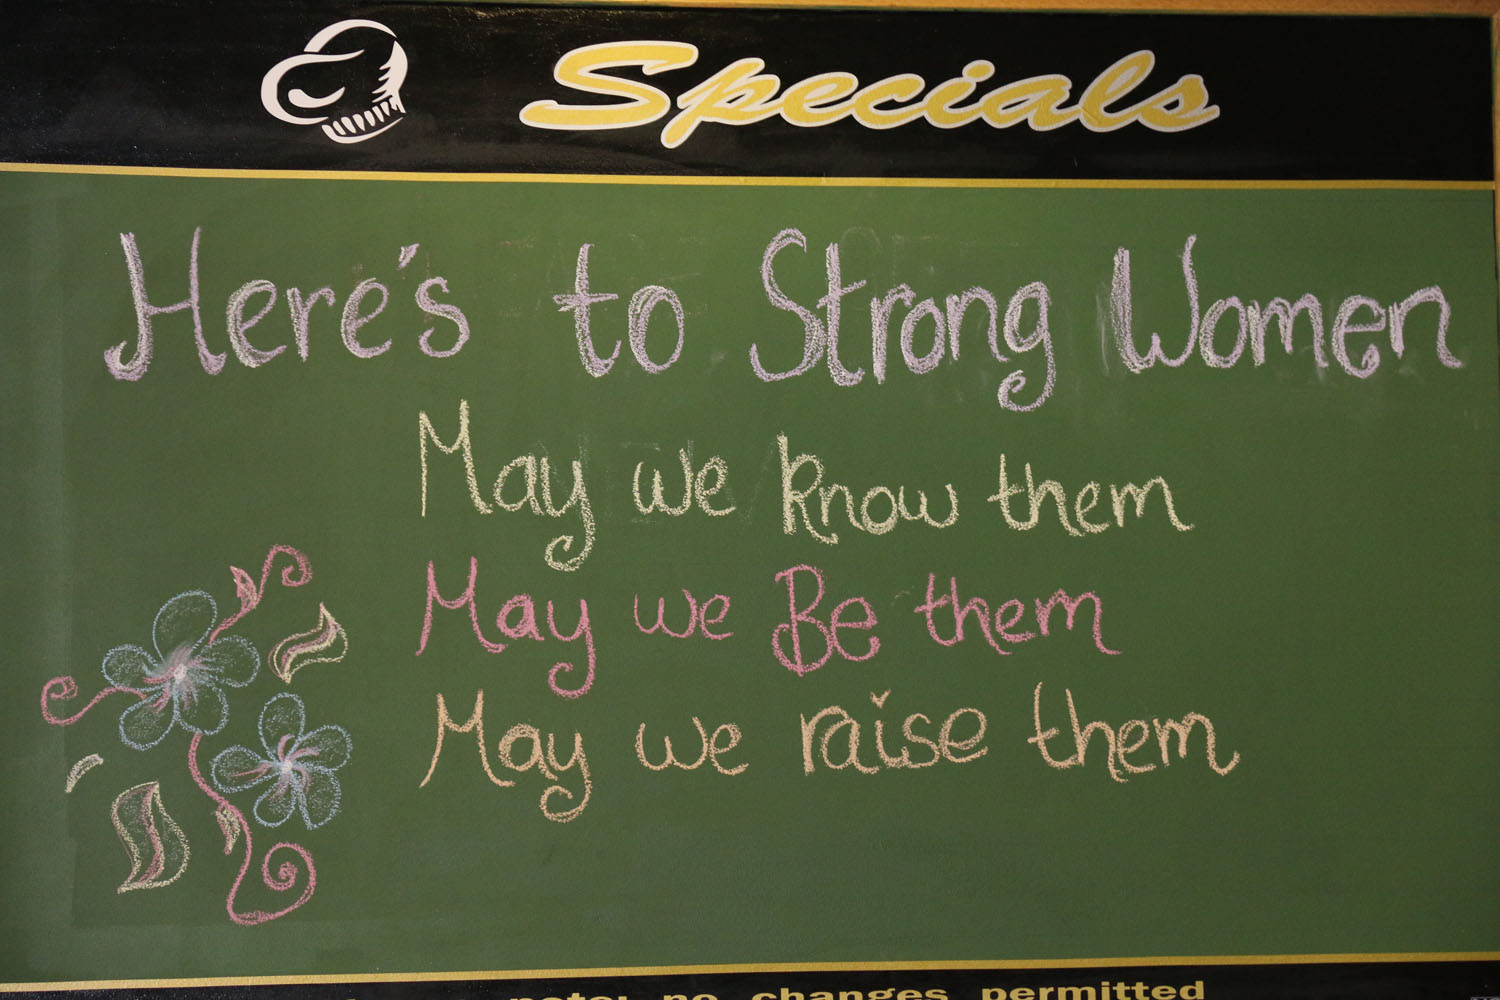 Specials
Here's to Strong Women
May we know them
May we Be them
May we raise them
note: no changes permitted